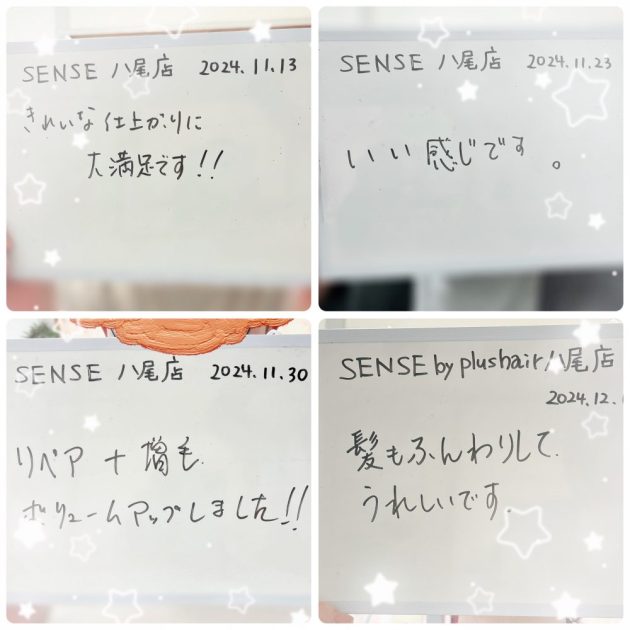 SENSE 八尾店 2024.11.13
きれいな仕上がりに
大満足です!!
SENSE 八尾店 2024.11.23
いい感じです。
SENSE 八尾店 2024.11.30
リペア+増毛
ボリュームアップしました!!
SENSE by plushair 八尾店
2024.12.
髪もふんわりして
うれしいです。